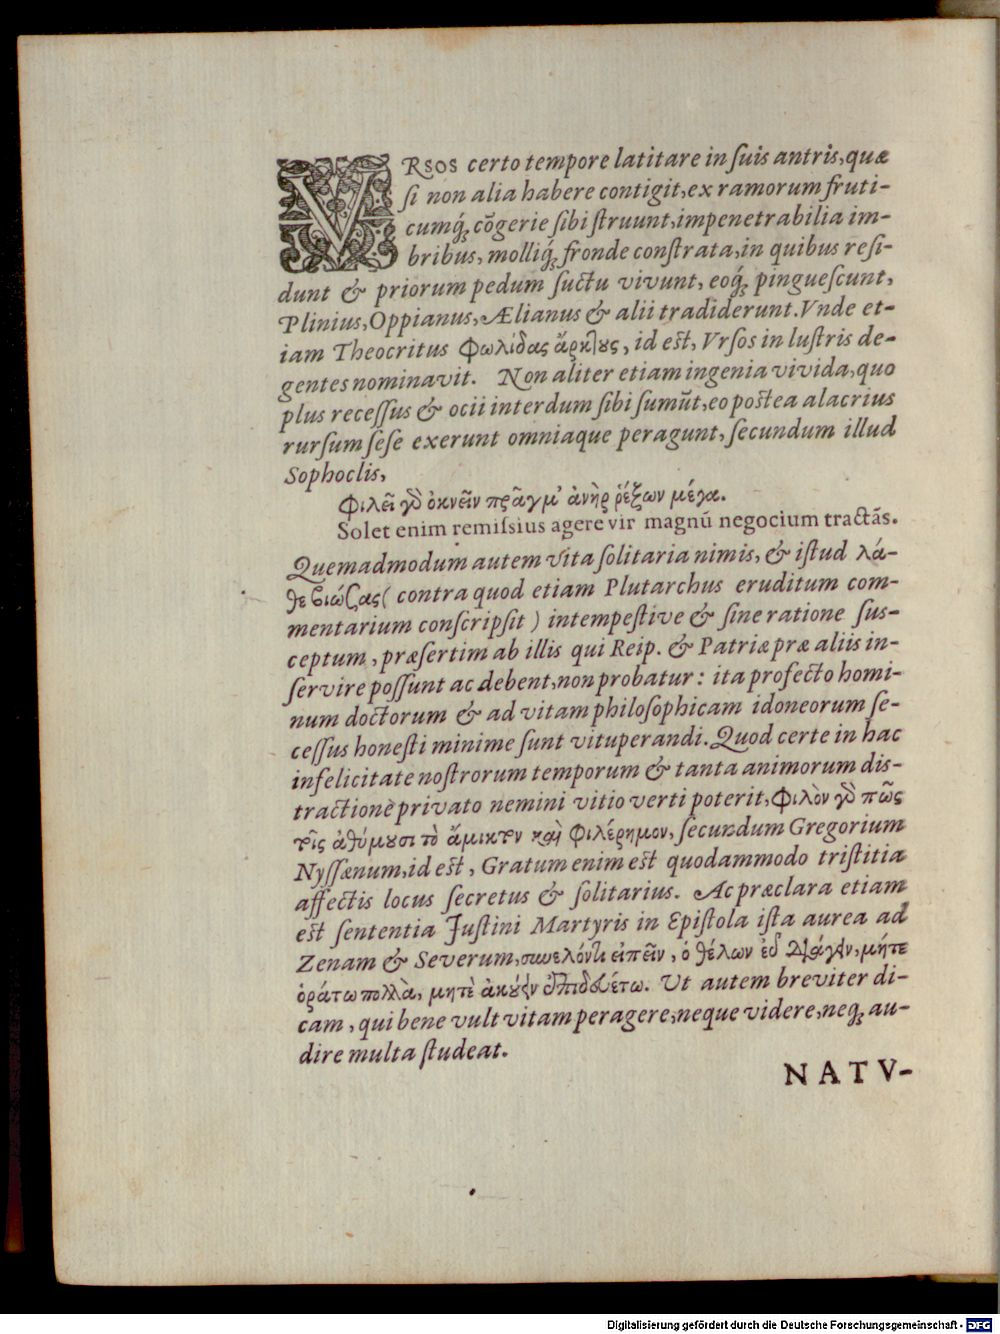 VRSOS certo tempore latitare in suis antris, quæ
si non alia habere contigit, ex ramorum fruti-
cumq́; cōgerie sibi struunt, impenetrabilia im-
bribus, molliq́; fronde constrata, in quibus resi-
dunt & priorum pedum suctu vivunt, eoq́; pinguescunt,
Plinius, Oppianus, Ælianus & alii tradiderunt. Vnde et-
iam Theocritus Φωλίδας ἄρκτους, id est, Vrsos in lustris de-
gentes nominavit. Non aliter etiam ingenia vivida, quo
plus recessus & ocii interdum sibi sumūt, eo postea alacrius
rursum sese exerunt omniaque peragunt, secundum illud
Sophoclis,
Φιλεῖ γὸ ὀκνεῖν πρᾶγμ' ἀνὴρ ῥέξων μέγα.
Solet enim remissius agere vir magnū negocium tractās.
Quemadmodum autem vita solitaria nimis, & istud λά-
θε βιώσας (contra quod etiam Plutarchus eruditum com-
mentarium conscripsit) intempestive & sine ratione sus-
ceptum, præsertim ab illis qui Reip. & Patriæ præ aliis in-
servire possunt ac debent, non probatur: ita profecto homi-
num doctorum & ad vitam philosophicam idoneorum se-
cessus honesti minime sunt vituperandi. Quod certe in hac
infelicitate nostrorum temporum & tanta animorum dis-
tractionè privato nemini vitio verti poterit, Φιλὸν γὸ πῶς
τοῖς ἀθύμουσι τὸ ἄμικτον καὶ Φιλέρημον, secundum Gregorium
Nyssænum, id est, Gratum enim est quodammodo tristitia
affectis locus secretus & solitarius. Ac præclara etiam
est sententia Justini Martyris in Epistola ista aurea ad
Zenam & Severum, συνελόντι εἰπεῖν, ὁ θέλων εὖ διάγειν, μήτε
ὁράτω πολλὰ, μητὲ ἀκούειν ἐπιδευέτω. Ut autem breviter di-
cam, qui bene vult vitam peragere, neque videre, neq; au-
dire multa studeat.
NATV-
Digitalisierung gefördert durch die Deutsche Forschungsgemeinschaft - DFG